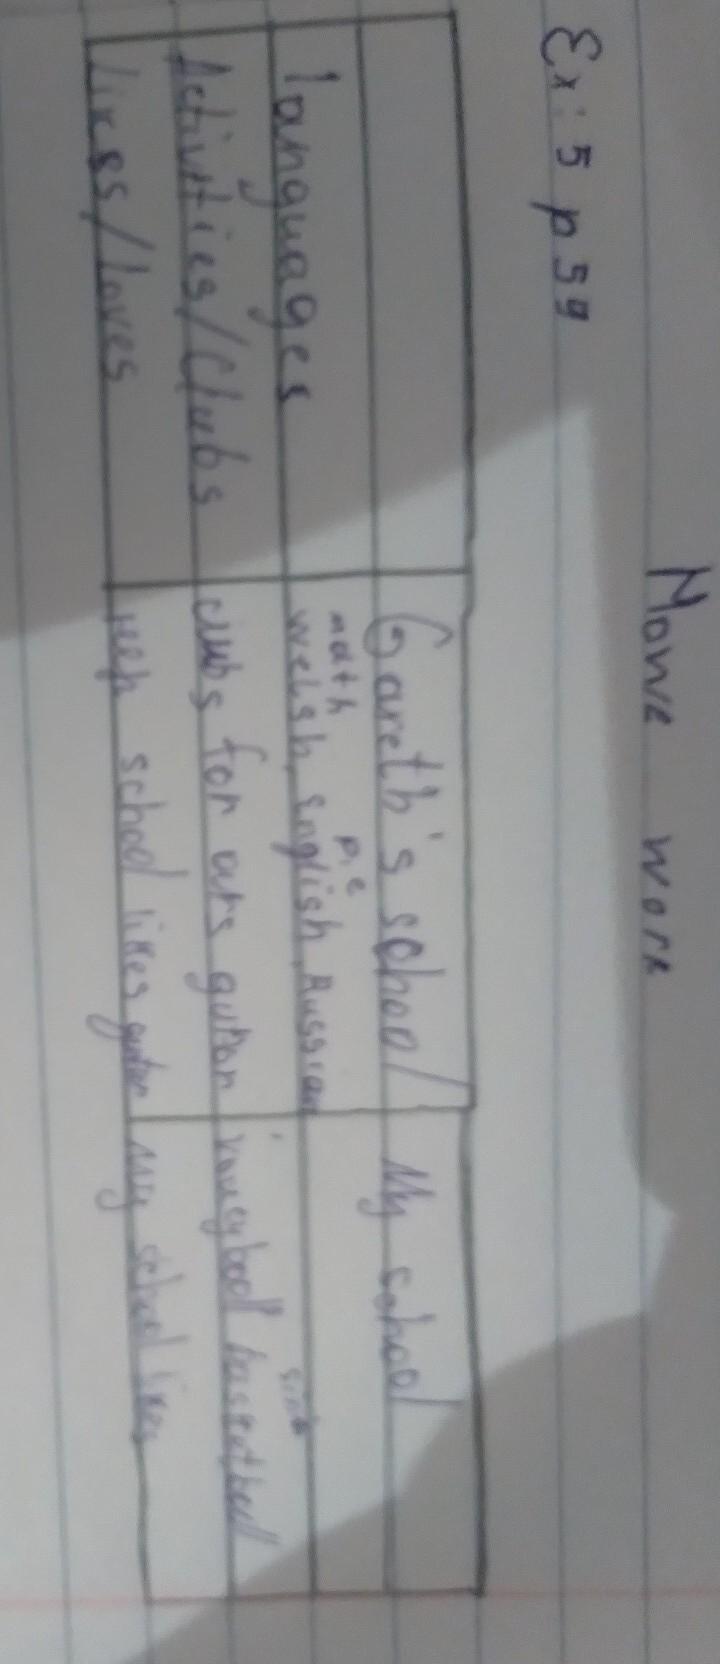 Home work
Ex: 5 p 59
Gareth's school My school
math p.e
languages welsh, english, Russian
Activities/Clubs clubs for ars guitar voleyball basketball
Likes/loves school likes guitar my school likes